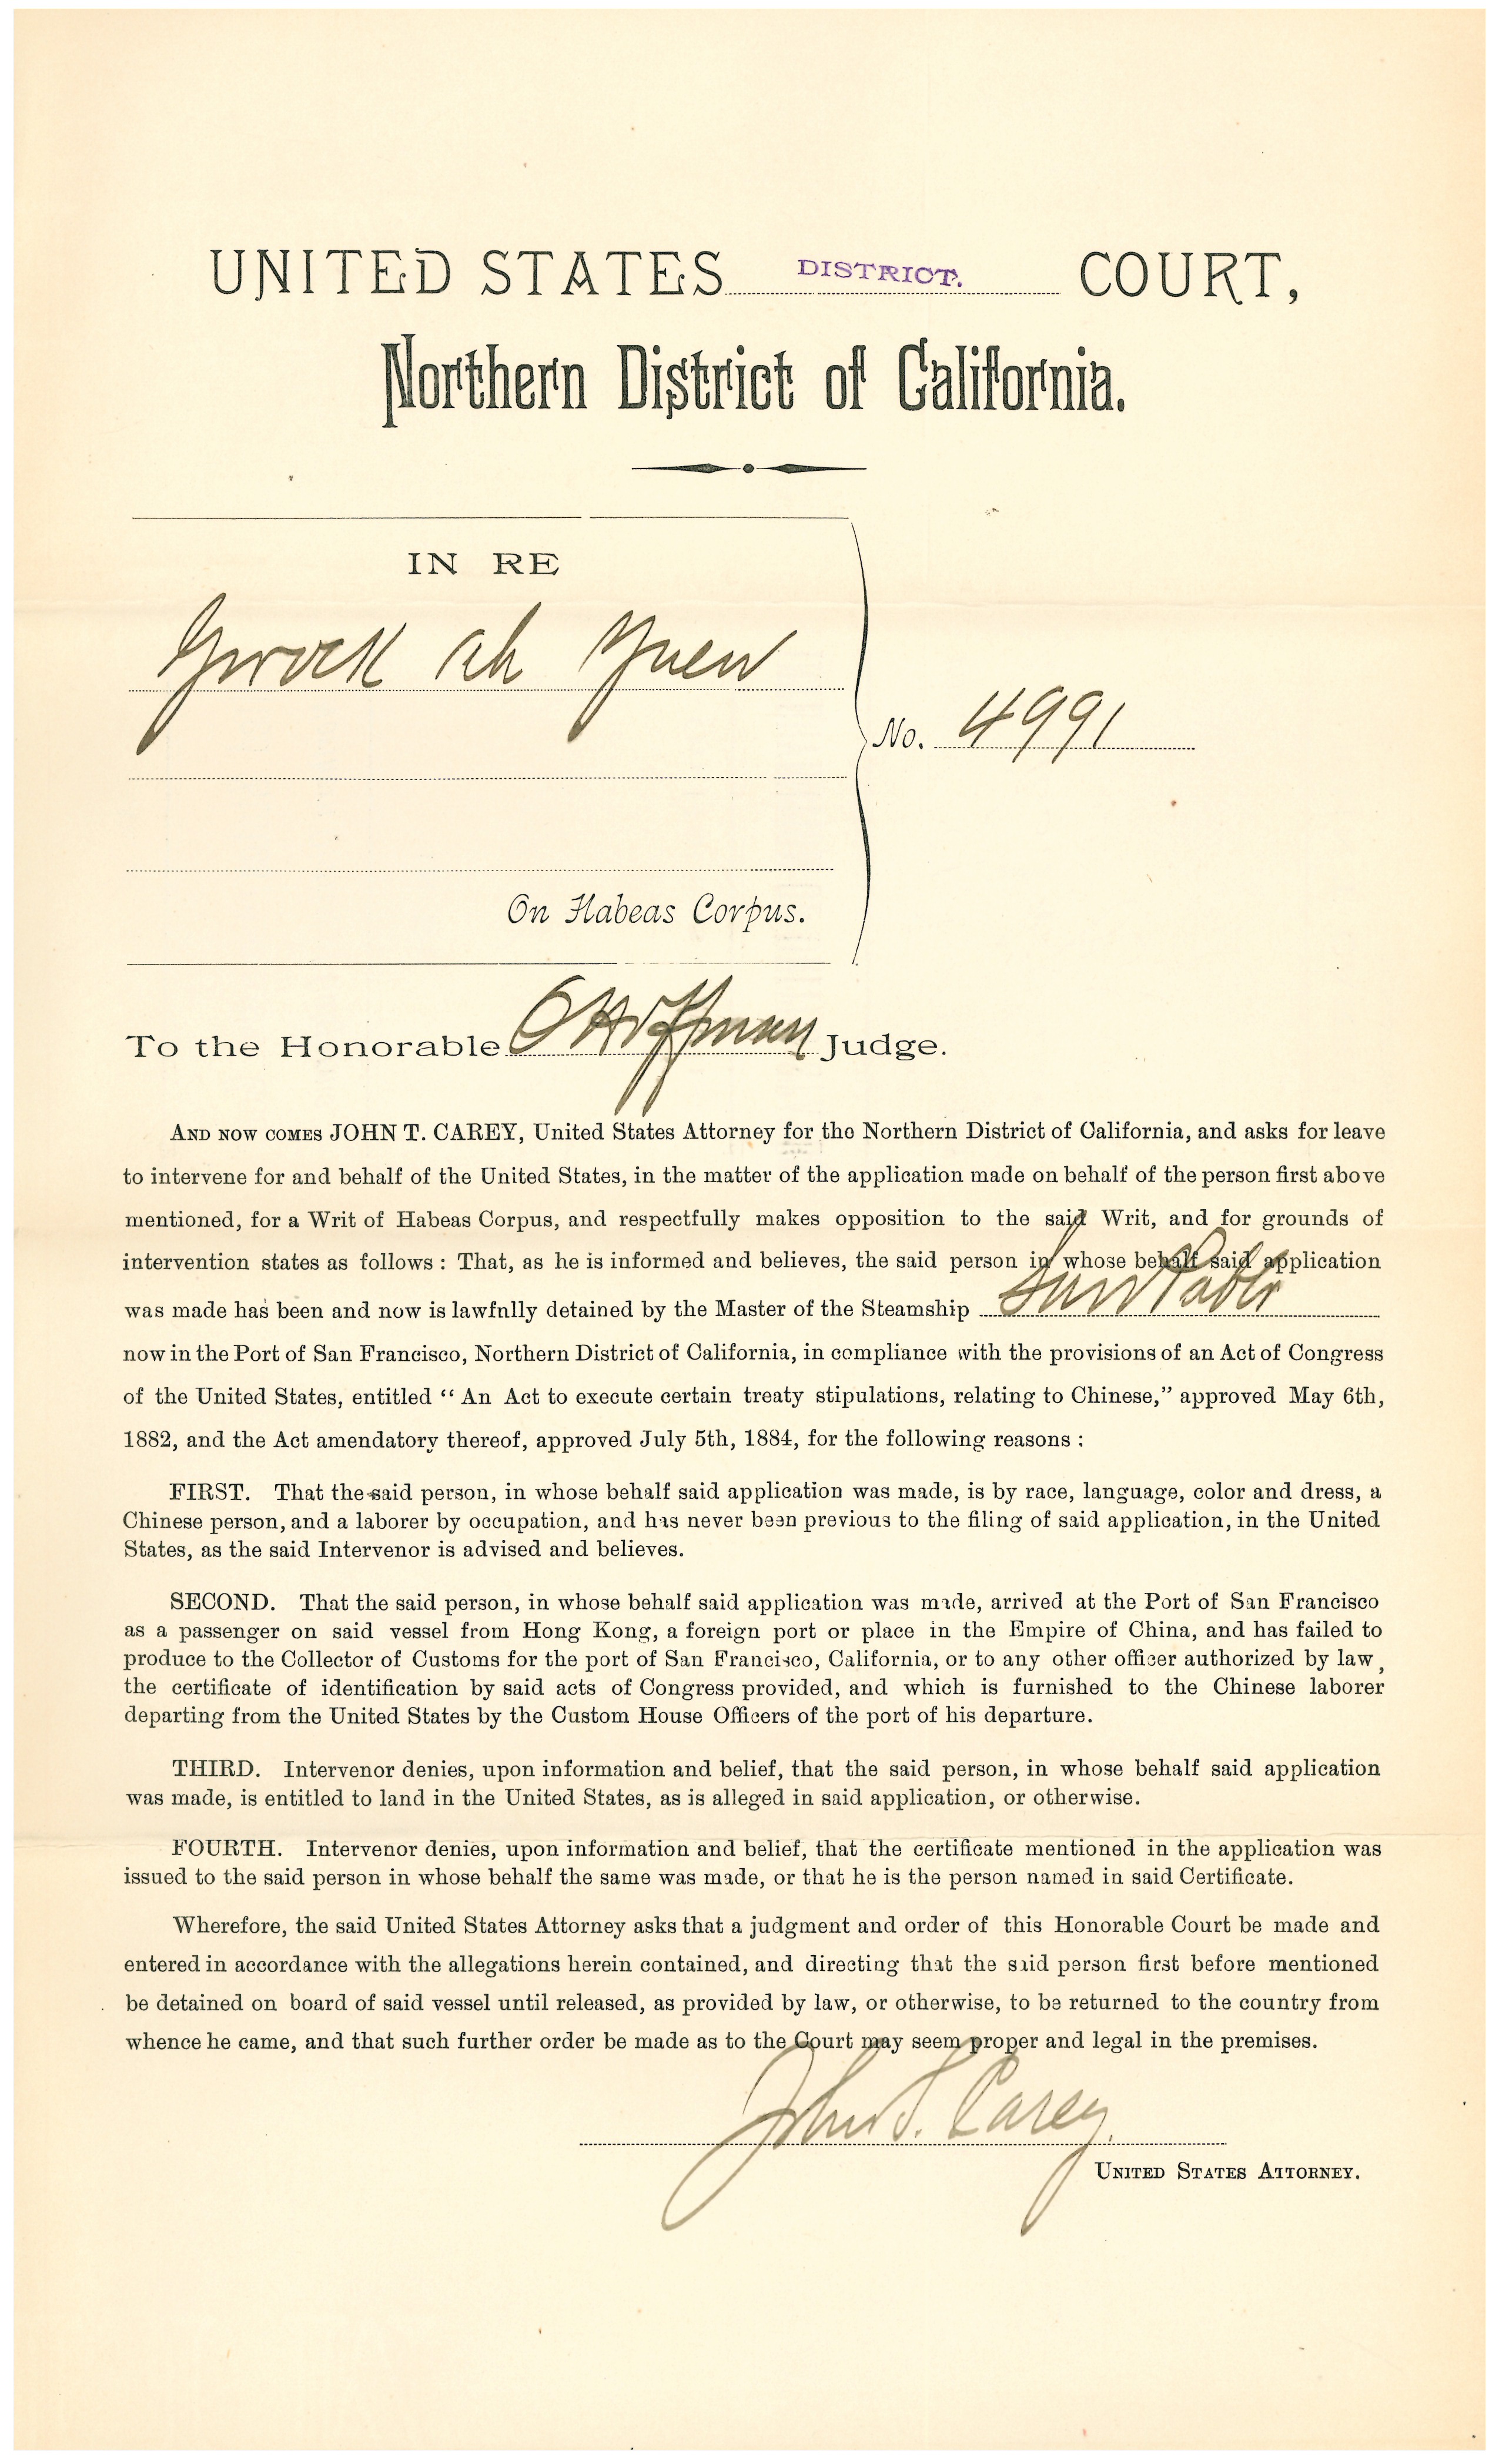 UNITED STATES DISTRICT. COURT,
Northern District of California.
IN RE
Ah Yuen
No. 4991
On Habeas Corpus.
To the Honorable O Hoffman Judge.
AND NOW COMES JOHN T. CAREY, United States Attorney for the Northern District of California, and asks for leave
to intervene for and behalf of the United States, in the matter of the application made on behalf of the person first above
mentioned, for a Writ of Habeas Corpus, and respectfully makes opposition to the said Writ, and for grounds of
intervention states as follows : That, as he is informed and believes, the said person in whose behalf said application
was made has been and now is lawfnlly detained by the Master of the Steamship San Pablo
now in the Port of San Francisco, Northern District of California, in compliance with the provisions of an Act of Congress
of the United States, entitled “ An Act to execute certain treaty stipulations, relating to Chinese,” approved May 6th,
1882, and the Act amendatory thereof, approved July 5th, 1884, for the following reasons :
FIRST. That the said person, in whose behalf said application was made, is by race, language, color and dress, a
Chinese person, and a laborer by occupation, and has never been previous to the filing of said application, in the United
States, as the said Intervenor is advised and believes.
SECOND. That the said person, in whose behalf said application was made, arrived at the Port of San Francisco
as a passenger on said vessel from Hong Kong, a foreign port or place in the Empire of China, and has failed to
produce to the Collector of Customs for the port of San Francisco, California, or to any other officer authorized by law,
the certificate of identification by said acts of Congress provided, and which is furnished to the Chinese laborer
departing from the United States by the Custom House Officers of the port of his departure.
THIRD. Intervenor denies, upon information and belief, that the said person, in whose behalf said application
was made, is entitled to land in the United States, as is alleged in said application, or otherwise.
FOURTH. Intervenor denies, upon information and belief, that the certificate mentioned in the application was
issued to the said person in whose behalf the same was made, or that he is the person named in said Certificate.
Wherefore, the said United States Attorney asks that a judgment and order of this Honorable Court be made and
entered in accordance with the allegations herein contained, and directing that the said person first before mentioned
be detained on board of said vessel until released, as provided by law, or otherwise, to be returned to the country from
whence he came, and that such further order be made as to the Court may seem proper and legal in the premises.
John T. Carey.
UNITED STATES ATTORNEY.